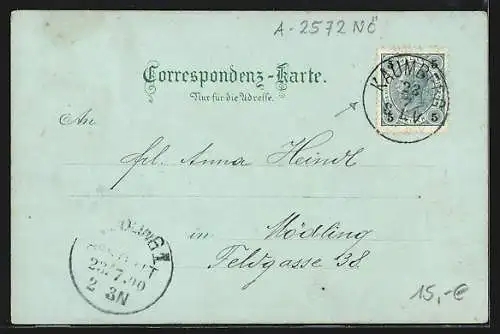 A-2572 NÖ
Correspondenz-Karte.
Nur für die Adresse.
KAUMBERG
23
5 5
An
frl. Anna Heindl
in Mödling
Feldgasse 38.
MÖDLING 1
23.7.00
2 3N
15,-€